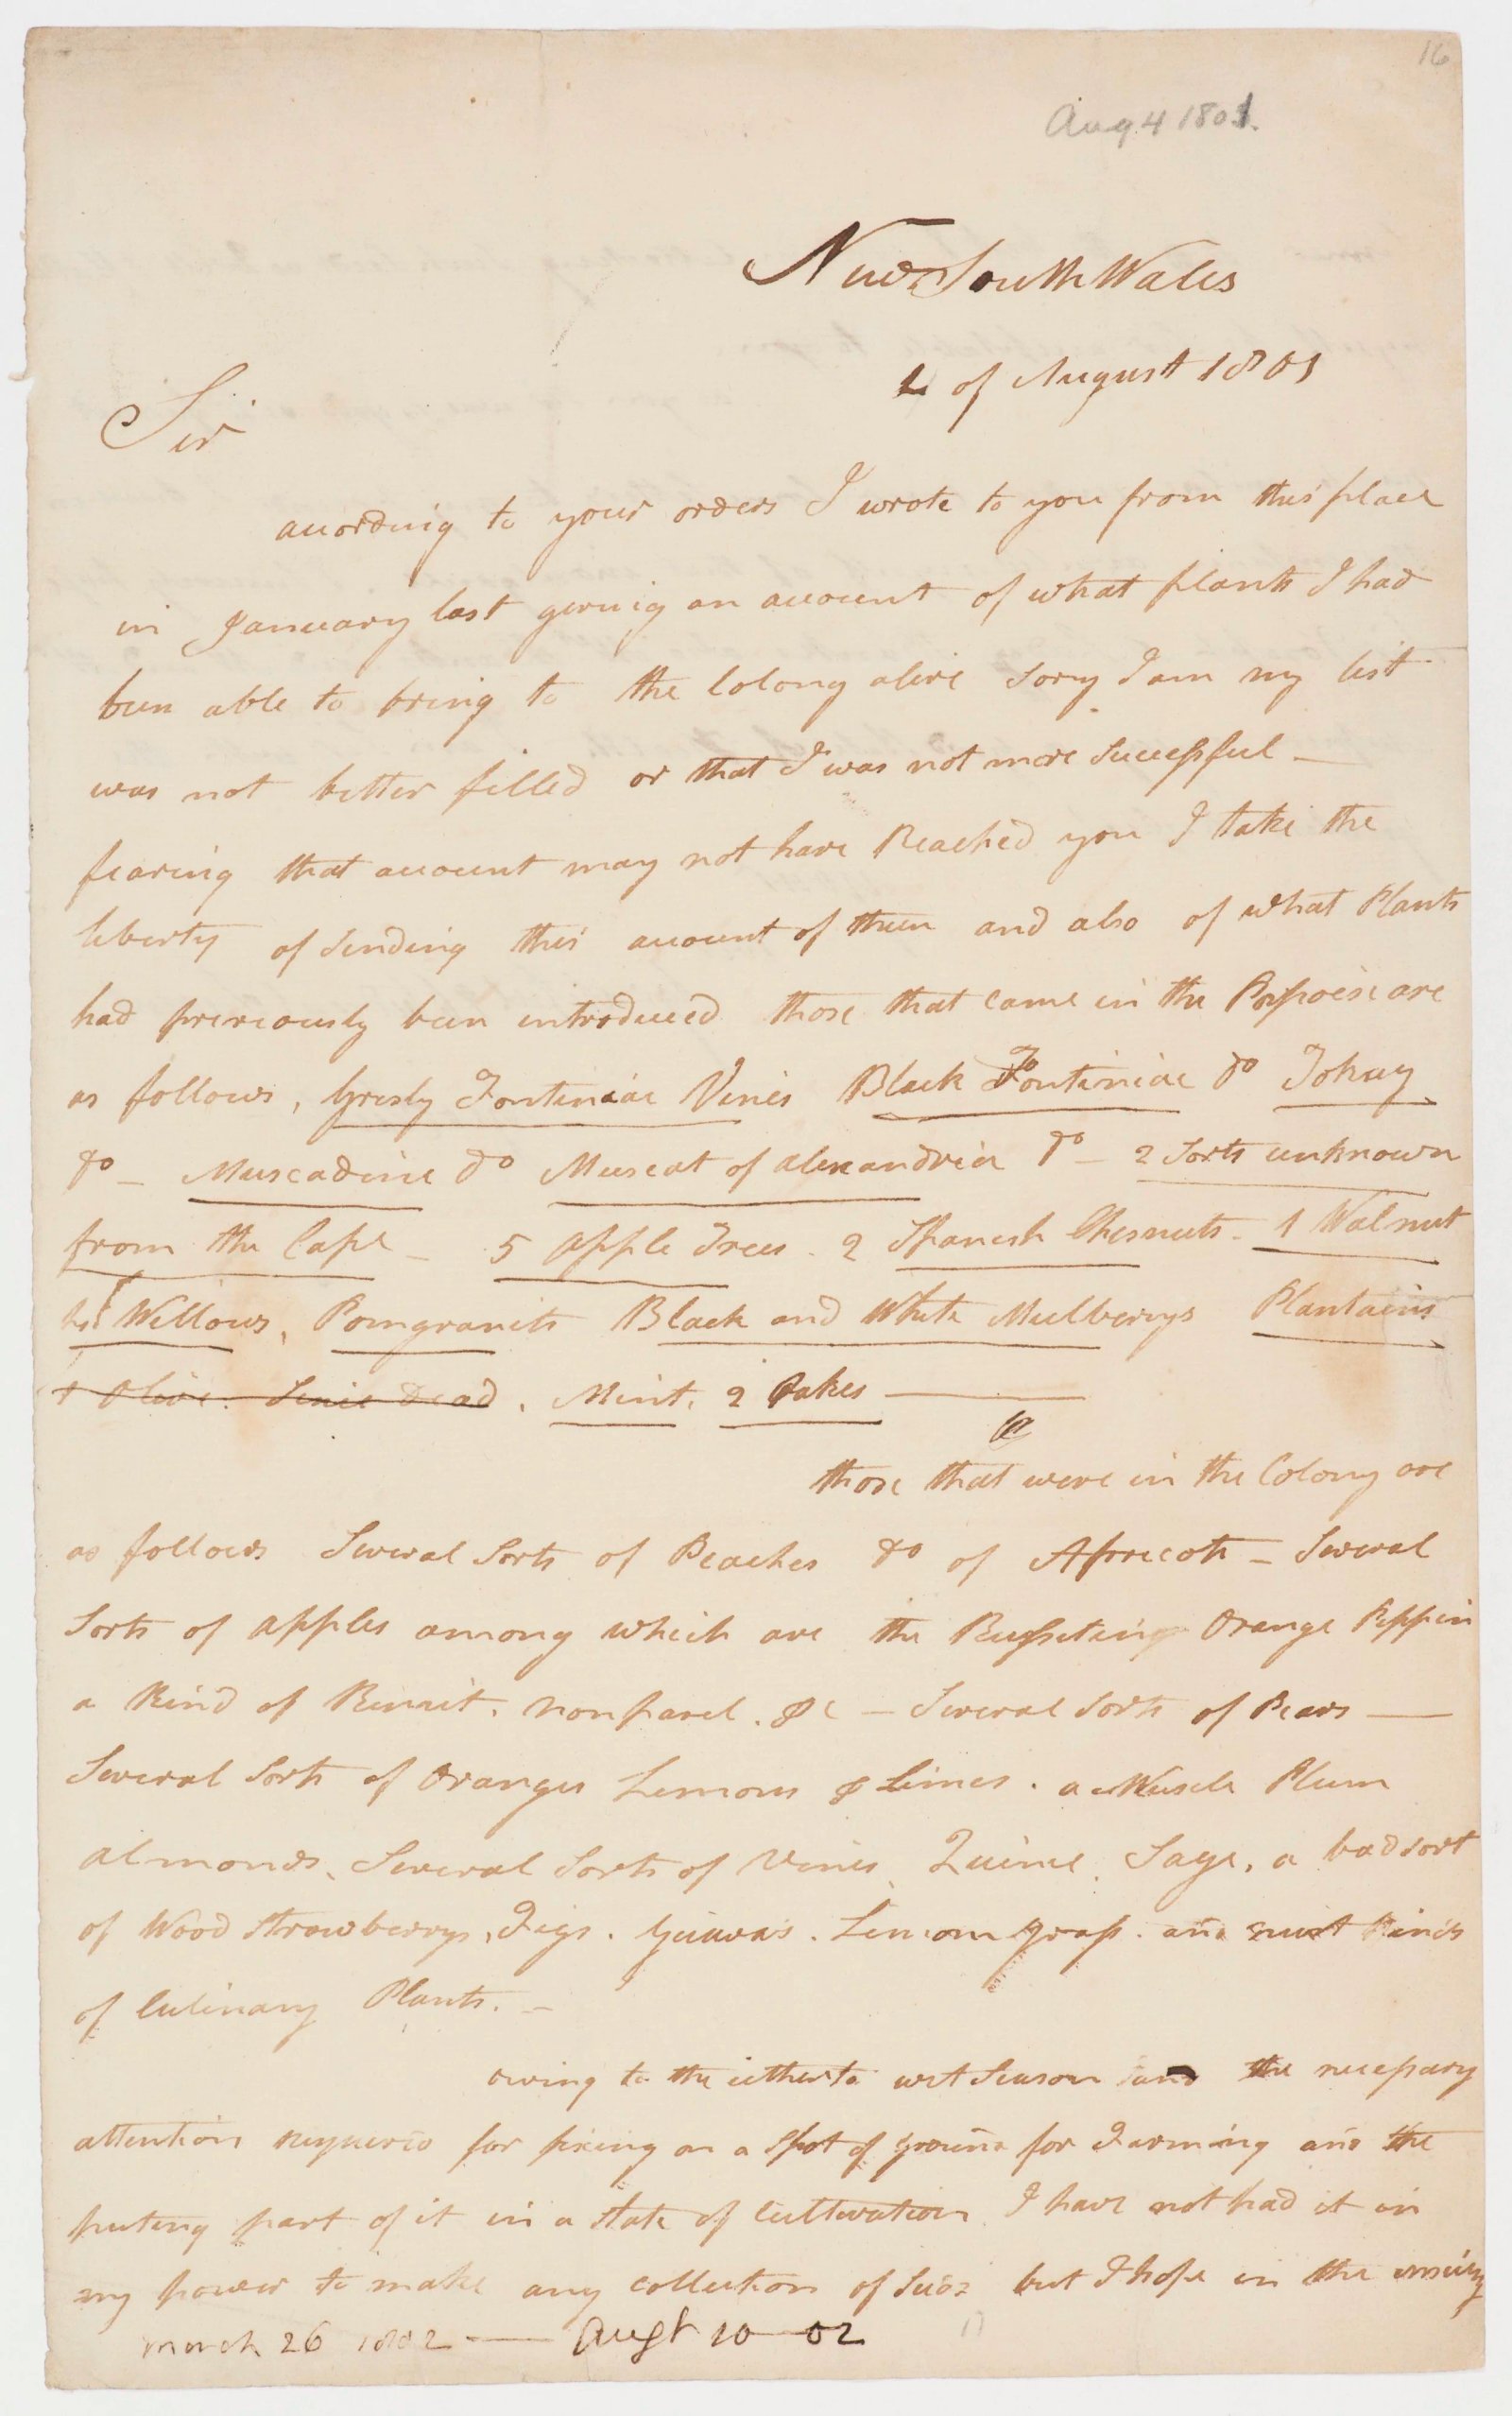 16
Aug 4 1801.
New South Wales
4 of August 1801
Sir
according to your orders I wrote to you from this place
in January last giving an account of what plants I had
been able to bring to the Colony alive Sorry I am my list
was not better filled or that I was not more Successful —
fearing that account may not have Reached you I take the
liberty of Sending this account of them and also of what Plants
had previously been introduced those that came in the Porpoise are
as follows, Grisly Fontiniac Vines Black Fontiniac do Tokay
do — Muscadine do Muscat of alexandria do — 2 Sorts unknown
from the Cape — 5 apple Trees . 2 Spanish Chesnuts . 1 Walnut
Willows, Pomgranits Black and White Mulberrys Plantains
1 Olive. Since dead . Mint. 2 Oakes —
those that were in the Colony are
as follows Several Sorts of Peaches do of Apricots — Several
Sorts of apples among which are the Russeting Orange Pippin
a Kind of Rennit. nonparel. &c — Several Sorts of Pears —
Several Sorts of Oranges Lemons & Limes . a Muscle Plum
almonds, Several Sorts of Vines, Quince, Sage, a bad sort
of Wood Strawberrys, Figs . Guavas . Lemon grass . and most Kinds
of Culinary Plants. —
owing to the itherto wet Season and the necessary
attention requierd for fixing on a Spot of ground for Farming and the
puting part of it in a State of Cultivation I have not had it in
my power to make any collection of Seeds but I hope in the ensuing
March 26 1802 — Augt 10 — 02